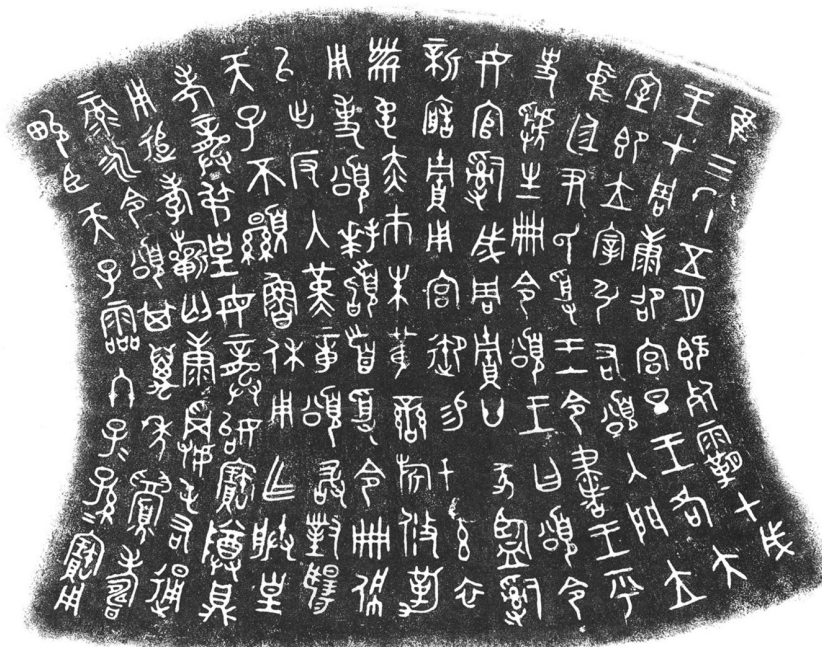 隹三年五月既死霸甲戌
王才周康卲宮旦王各大
室即立宰弘右頌入門立
中廷尹氏受王令書王乎
史虢生冊令頌王曰頌令
女官𤔲成周貯廿家監𤔲
新造貯用宮御易女玄衣
黹屯赤巿朱黃䜌旂攸勒
用事頌拜𩒨首受令冊佩
㠯出反入堇章頌敢對揚
天子不顯魯休用乍朕皇
考龏弔皇母龏始寶尊鼎
用追孝𣄨匄康𩛥屯右通
彔永令頌其萬年眉壽
畯臣天子霝冬子=孫=寶用